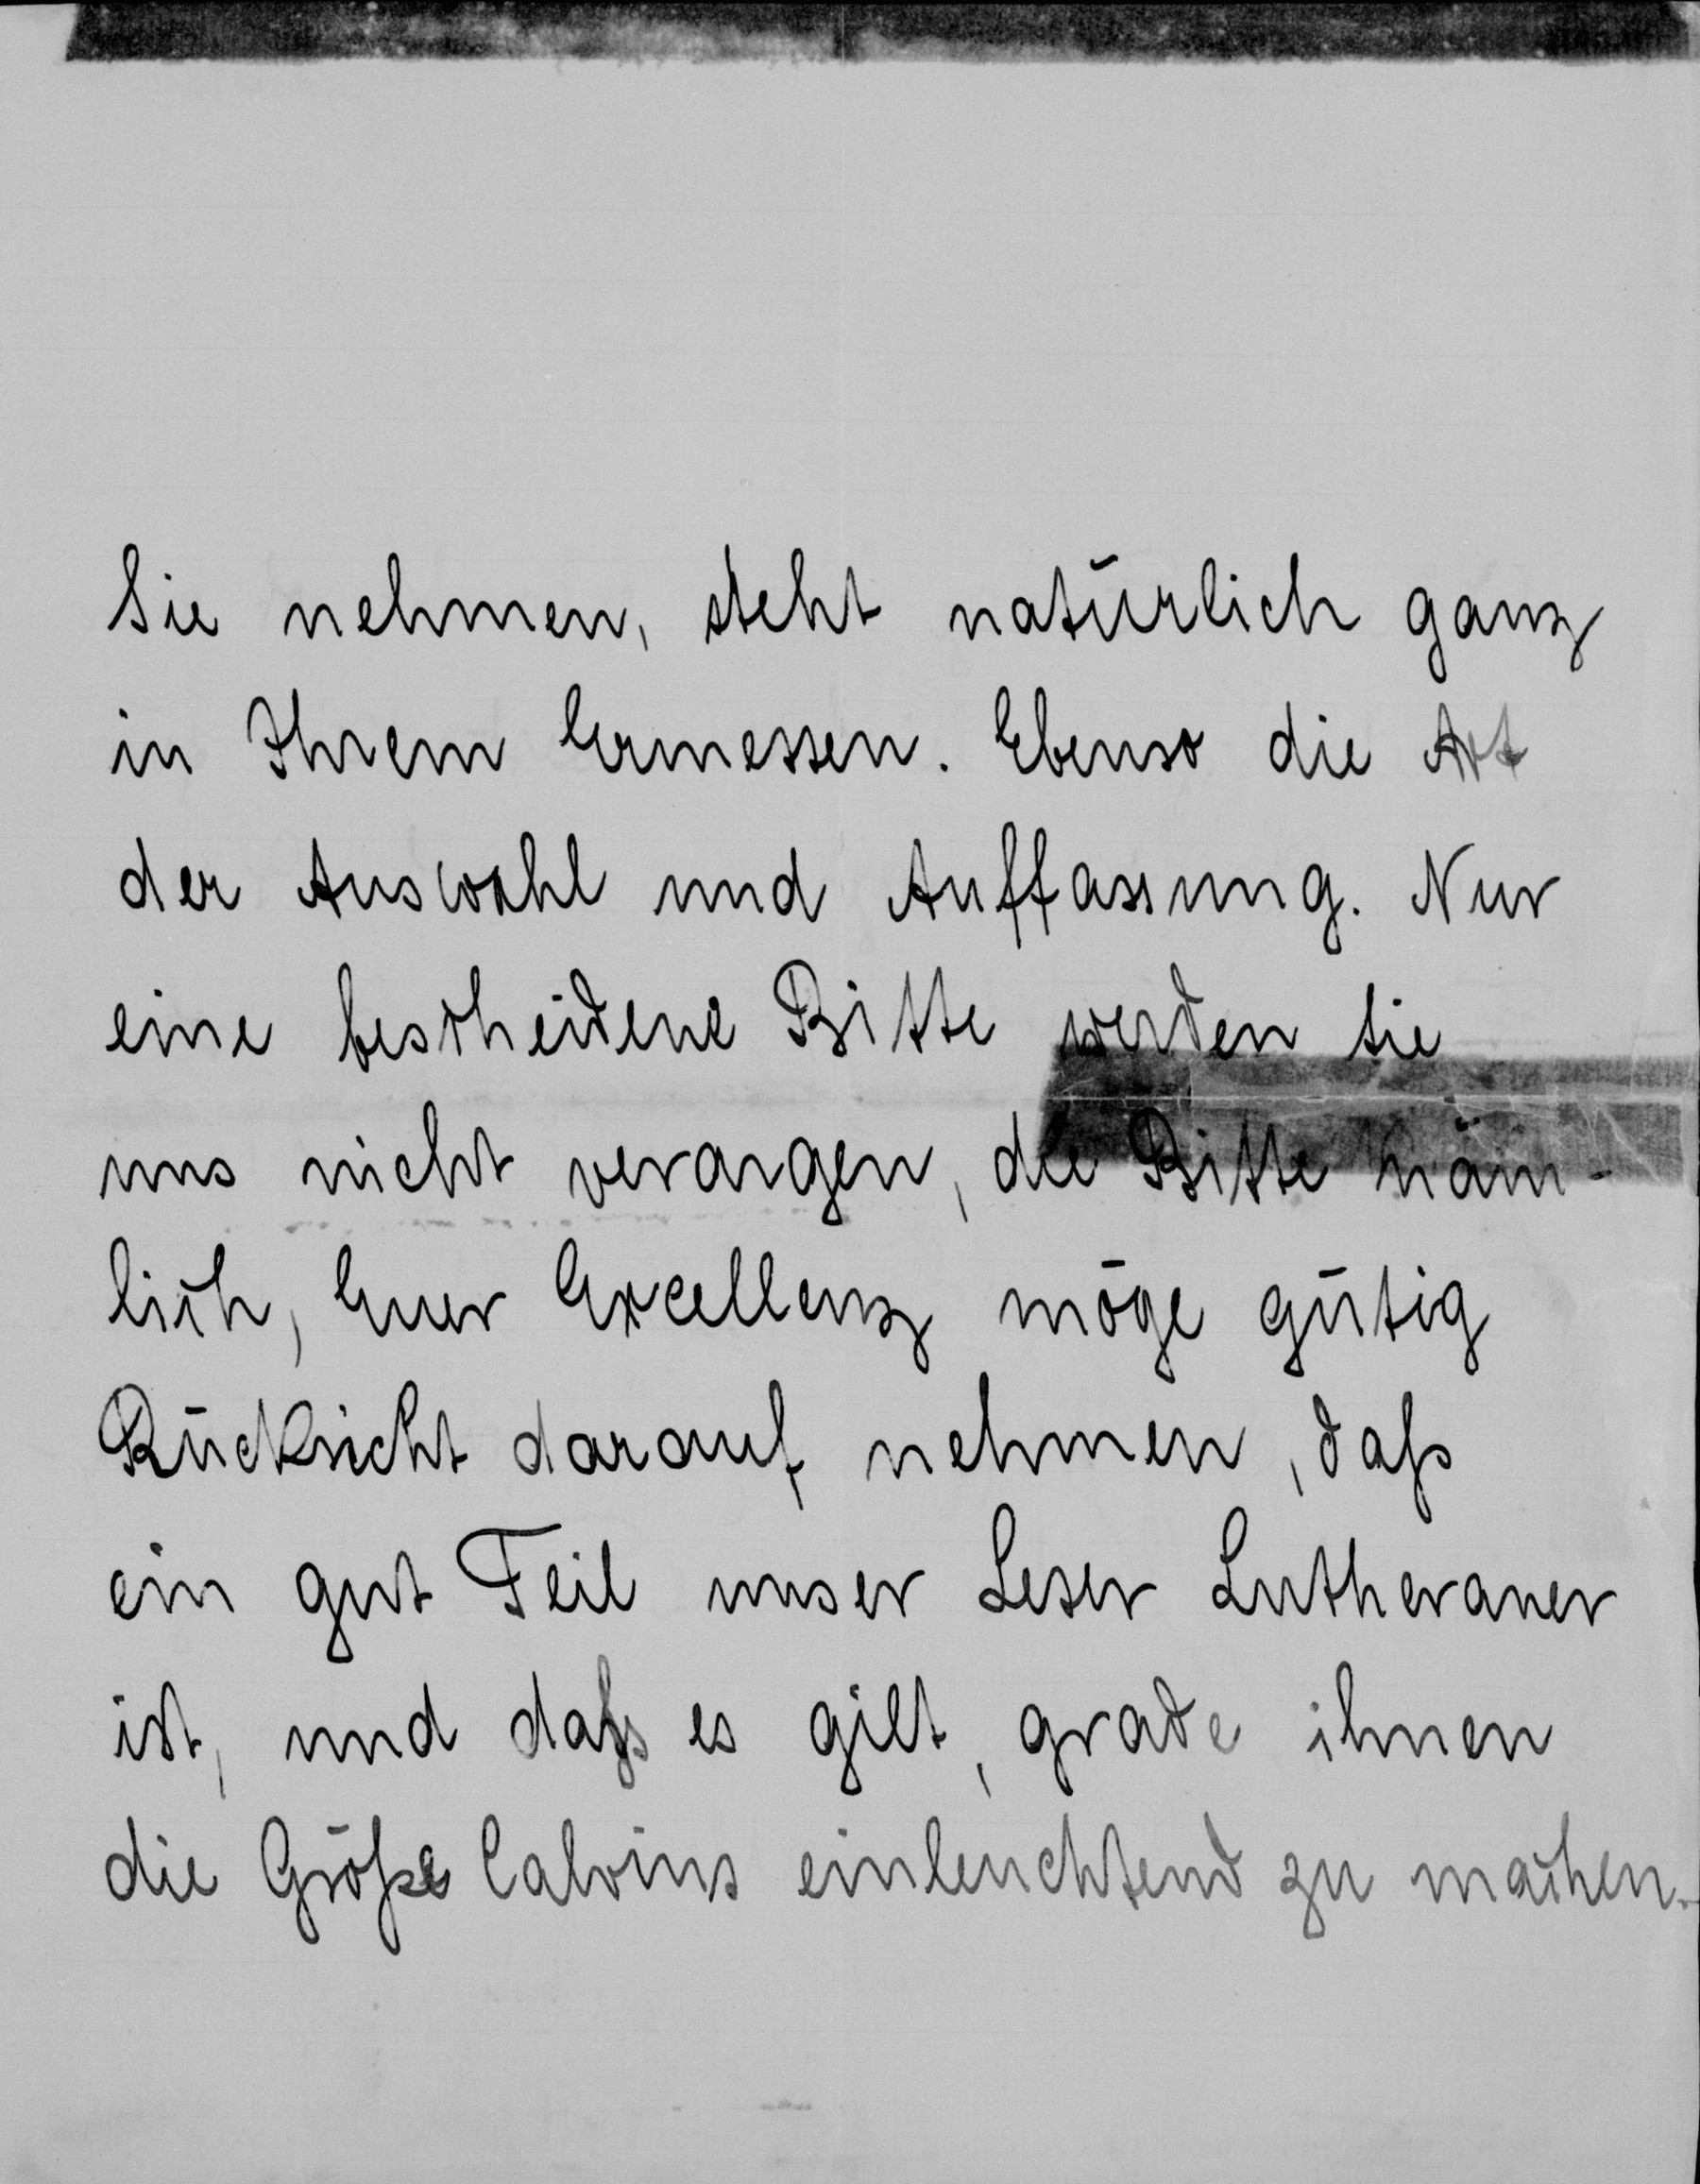 Sie nehmen, steht natürlich ganz
in Ihrem Ermessen. Ebenso die Art
der Auswahl und Auffassung. Nur
eine bescheidene Bitte werden Sie
uns nicht verargen, die Bitte näm-
lich, Euer Excellenz möge gütig
Rücksicht darauf nehmen, daß
ein gut Teil unser Leser Lutheraner
ist, und daß es gilt, grade ihnen
die Größe Calvins einleuchtend zu machen.